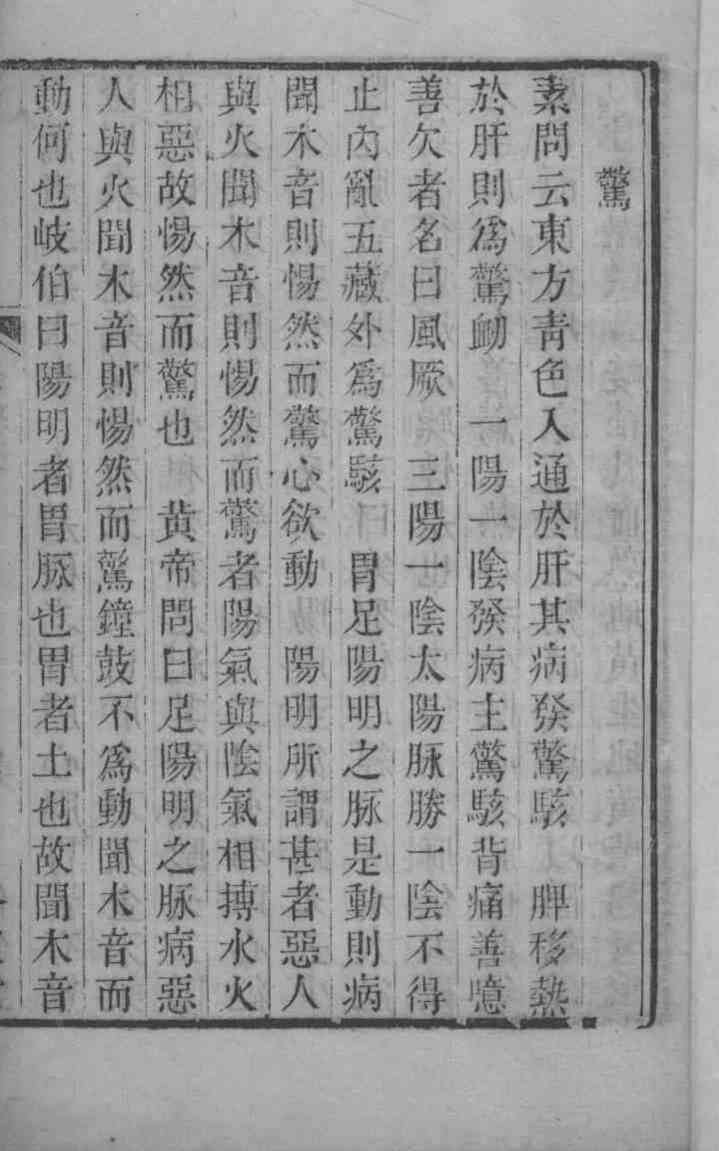 驚
素問云東方靑色入通於肝其病發驚駭　脾移熱
於肝則爲驚衂　一陽一陰發病主驚駭背痛善噫
善欠者名曰風厥　三陽一陰太陽脉勝一陰不得
止內亂五藏外爲驚駭　胃足陽明之脉是動則病
聞木音則惕然而驚心欲動　陽明所謂甚者惡人
與火聞木音則惕然而驚者陽氣與陰氣相搏水火
相惡故惕然而驚也　黃帝問曰足陽明之脉病惡
人與火聞木音則惕然而驚鐘鼓不爲動聞木音而
動何也岐伯曰陽明者胃脉也胃者土也故聞木音